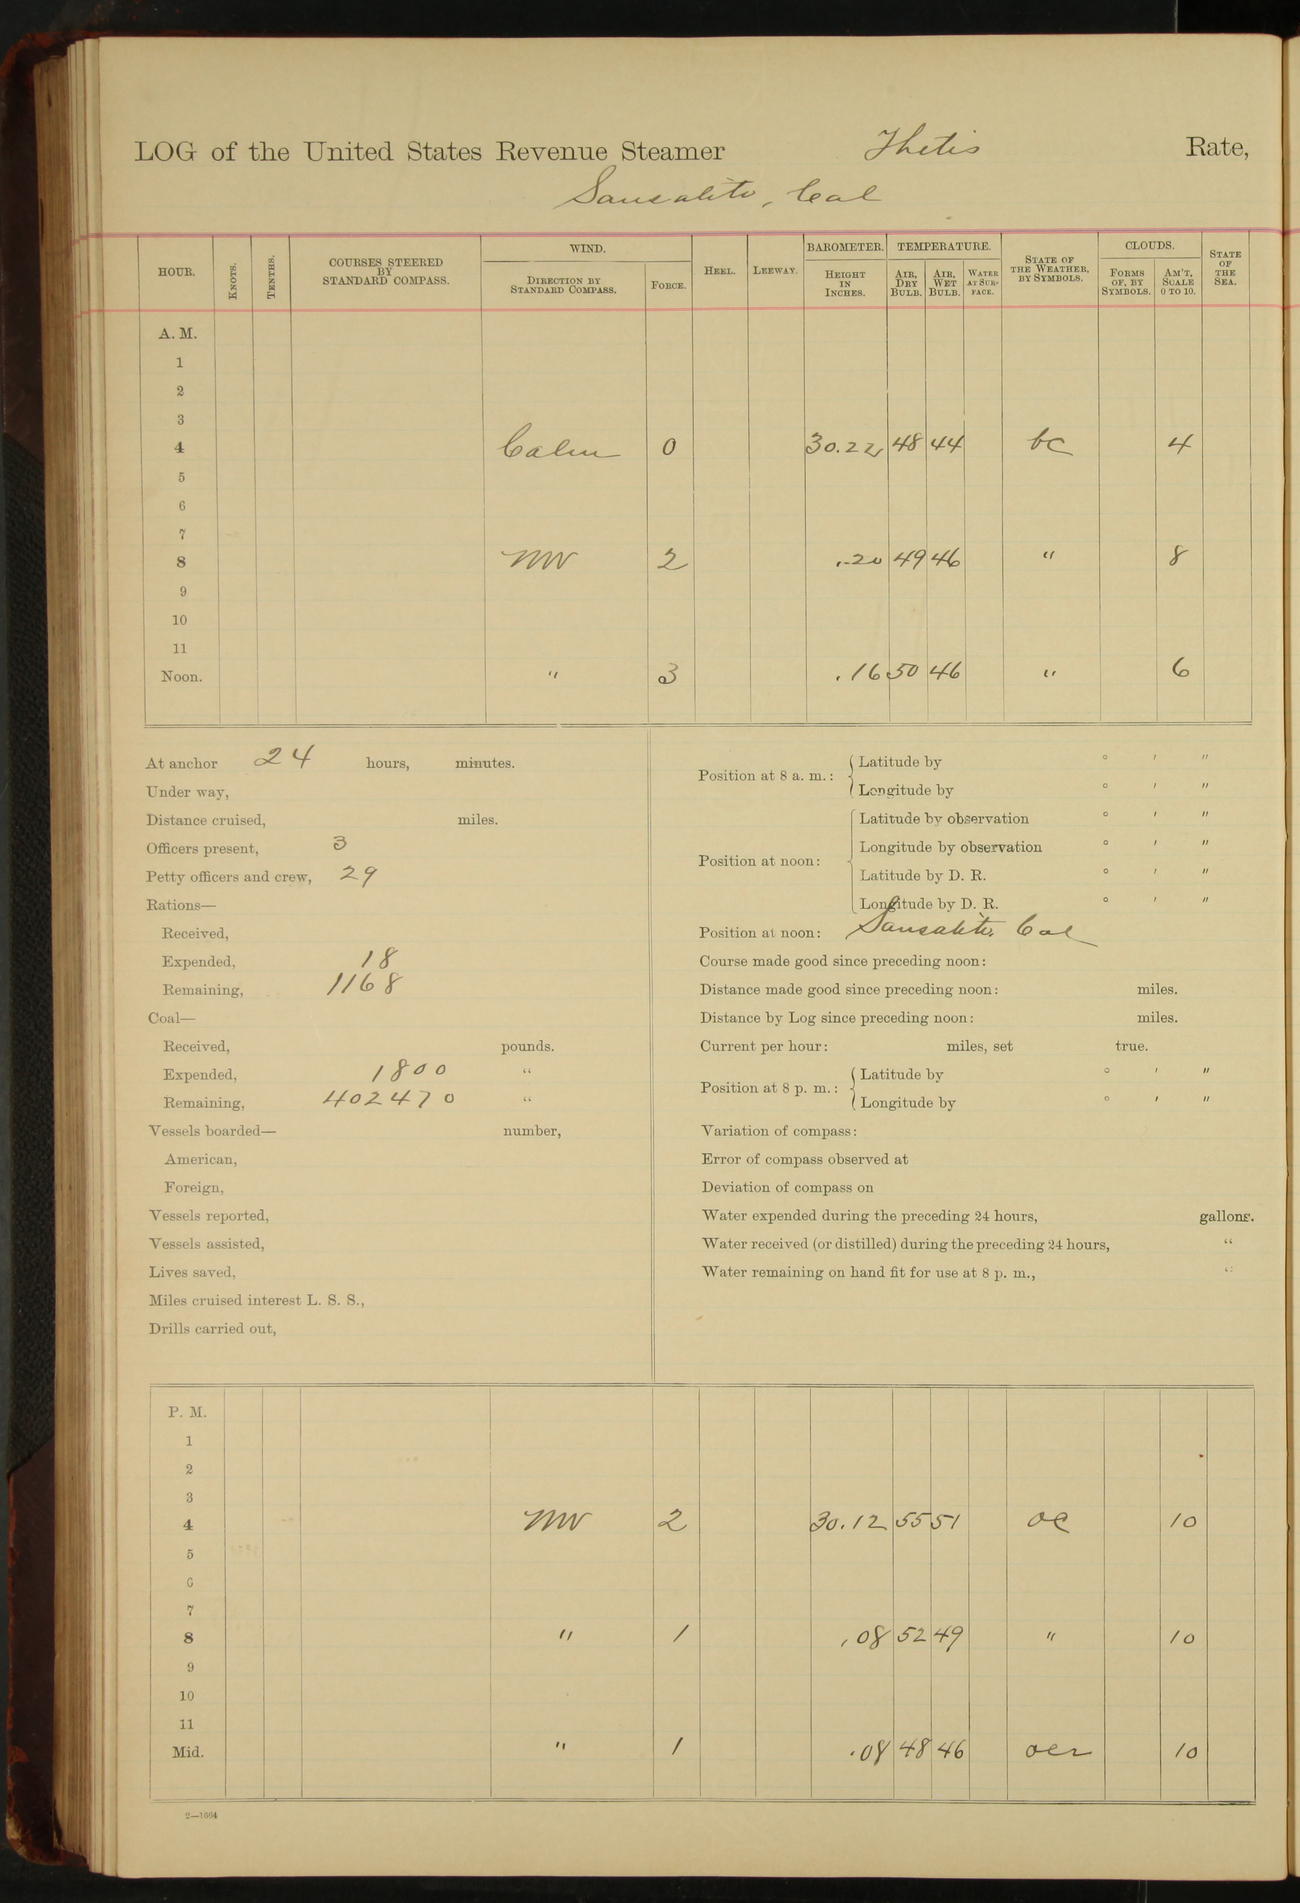 LOG of the United States Revenue Steamer Thetis Rate,
Sausalito, Cal
HOUR. KNOTS. TENTHS. COURSES STEERED BY STANDARD COMPASS. WIND. DIRECTION BY STANDARD COMPASS. FORCE. HEEL. LEEWAY. BAROMETER. HEIGHT IN INCHES. TEMPERATURE. AIR, DRY BULB. AIR, WET BULB. WATER AT SURFACE. STATE OF THE WEATHER, BY SYMBOLS. CLOUDS. FORMS OF, BY SYMBOLS. AM'T, SCALE 0 TO 10. STATE OF THE SEA.
A. M.
1
2
3
4 Calm 0 30.22 48 44 bc 4
5
6
7
8 NW 2 .20 49 46 " 8
9
10
11
Noon. " 3 .16 50 46 " 6
At anchor 24 hours, minutes.
Under way,
Distance cruised, miles.
Officers present, 3
Petty officers and crew, 29
Rations—
Received,
Expended, 18
Remaining, 1168
Coal—
Received, pounds.
Expended, 1800 "
Remaining, 402470 "
Vessels boarded— number,
American,
Foreign,
Vessels reported,
Vessels assisted,
Lives saved,
Miles cruised interest L. S. S.,
Drills carried out,
Position at 8 a. m.: Latitude by ° ' "
Longitude by ° ' "
Position at noon: Latitude by observation ° ' "
Longitude by observation ° ' "
Latitude by D. R. ° ' "
Longitude by D. R. ° ' "
Position at noon: Sausalito, Cal
Course made good since preceding noon:
Distance made good since preceding noon: miles.
Distance by Log since preceding noon: miles.
Current per hour: miles, set true.
Position at 8 p. m.: Latitude by ° ' "
Longitude by ° ' "
Variation of compass:
Error of compass observed at
Deviation of compass on
Water expended during the preceding 24 hours, gallons.
Water received (or distilled) during the preceding 24 hours, "
Water remaining on hand fit for use at 8 p. m., "
P. M.
1
2
3
4 NW 2 30.12 55 51 oc 10
5
6
7
8 " 1 .08 52 49 " 10
9
10
11
Mid. " 1 .08 48 46 ocr 10
2—1664